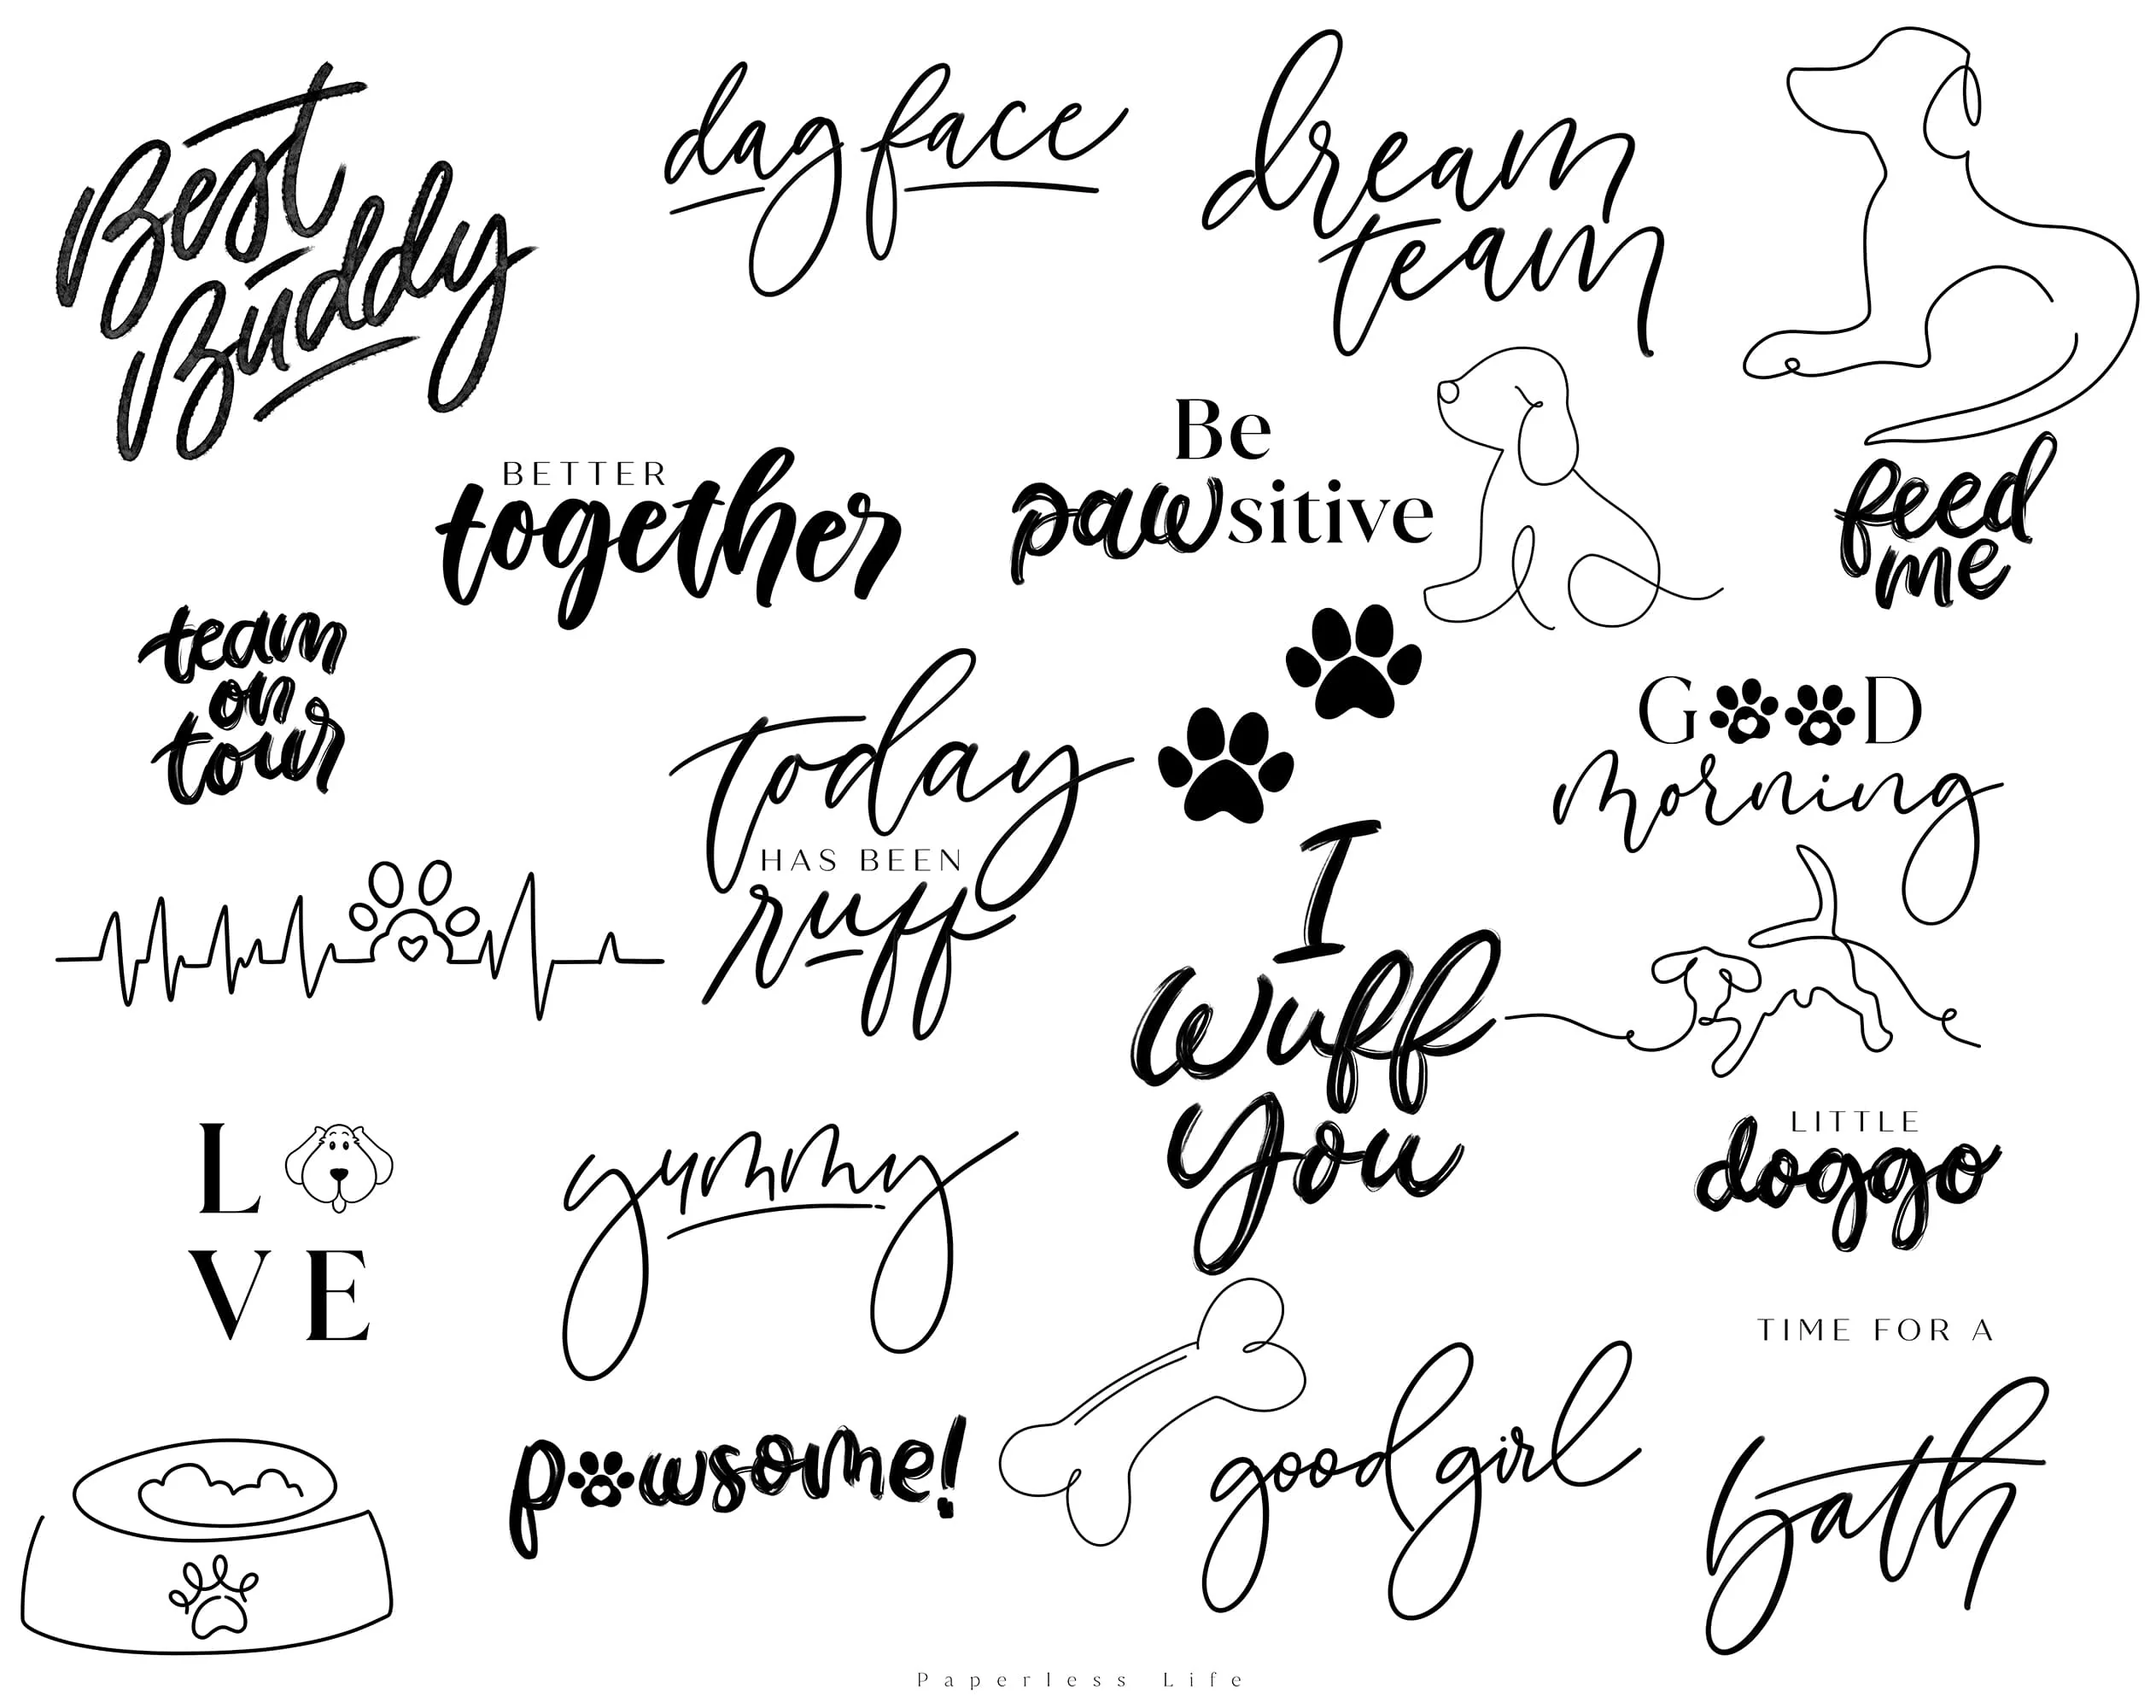 Best
Buddy
dag face
dream
team
BETTER
together
Be
pawsitive
feed
me
team
on
tour
Today
HAS BEEN
ruff
GOOD
morning
I
Wuff
You
LOVE
yummy
LITTLE
doggo
pawsome!
good girl
TIME FOR A
bath
Paperless Life